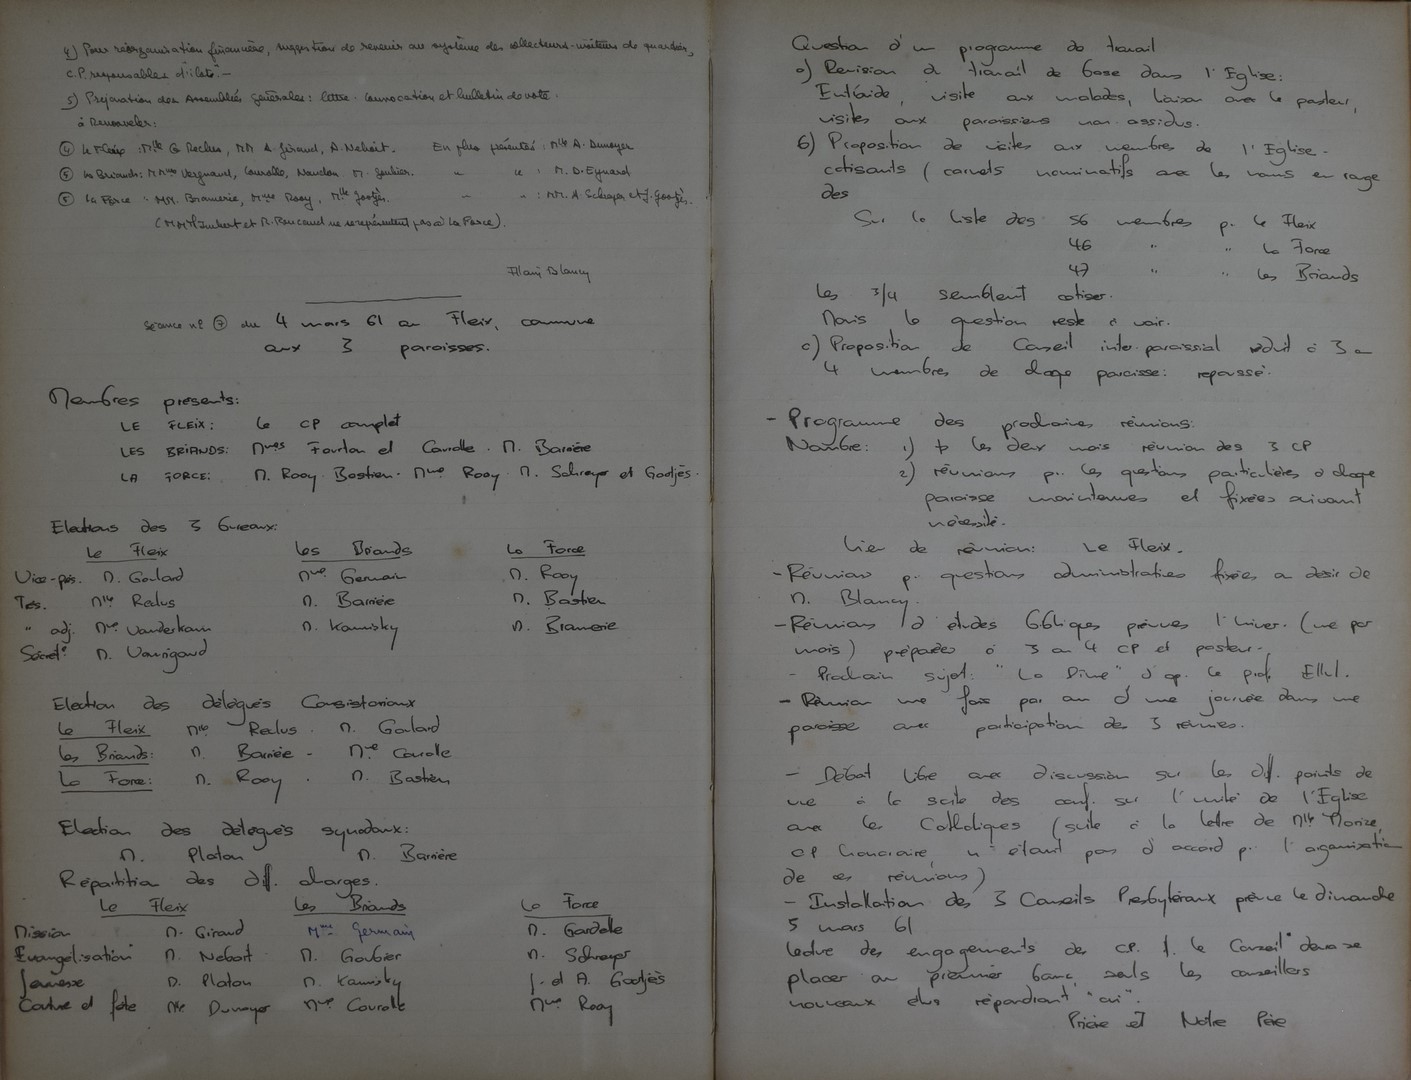 4) Pour réorganisation financière, suggestion de revenir au système des collecteurs-visiteurs de quartiers,
C.P. responsables d'îlots.-
5) Préparation des Assemblées générales: lettre-convocation et bulletin de vote.
à Renouveler:
④ le Fleix : Mlle G Reclus, MM A. Giraud, A. Nebout. En plus présentés : Mlle A. Dumoyer
⑤ les Briands: MMmes Vergnaud, Courolle, M. Goubier. " " : M. D. Eynard
⑤ La Force : MM. Bramerie, Mme Rooy, Mlle Gootjès. - " : MM. A. Schreyer et J. Gootjès.
(MM Imbert et R. Boucaud ne se représentent pas à La Force).
Alain Blancy
Séance n° ⑦ du 4 mars 61 au Fleix, commune
aux 3 paroisses.
Membres présents:
LE FLEIX: le CP complet
LES BRIANDS: Mmes Fourton et Courolle. M. Barrière
LA FORCE: M. Rooy. Bastien. Mme Rooy. M. Schreyer et Gootjès.
Elections des 3 bureaux:
Le Fleix Les Briands La Force
Vice-prés. M. Goulard Mme Germain M. Rooy
Trés. Mlle Reclus M. Barrière M. Bastien
" adj. Mme Vanderkam M. Kamisky M. Bramerie
Secrét. M. Vaurigaud
Election des délégués Consistoriaux
Le Fleix Mlle Reclus. M. Goulard
Les Briands: M. Barrière - Mme Courolle
La Force: M. Rooy . M. Bastien
Election des délégués synodaux:
M. Platon M. Barrière
Répartition des diff. charges.
Le Fleix Les Briands La Force
Mission M. Giraud Mme Germain M. Gardelle
Evangélisation M. Nebout M. Goubier M. Schreyer
Jeunesse M. Platon M. Kamisky J. et A. Gootjès
Couture et fête Mlle Dumoyer Mme Courolle Mme Rooy
Question d'un programme de travail
a) Révision du travail de base dans l'Eglise:
Entraide, visite aux malades, liaison avec le pasteur,
visites aux paroissiens non assidus.
b) Proposition de visites aux membres de l'Eglise.
cotisants (carnets nominatifs avec les noms en rouge
des
Sur la liste des 56 membres p. Le Fleix
46 " " La Force
47 " " les Briands
les 3/4 semblent cotiser.
Mais la question reste à voir.
c) Proposition de Conseil inter-paroissial réduit à 3 ou
4 membres de chaque paroisse: repoussé.
- Programme des prochaines réunions:
Nombre: 1) ts les deux mois réunion des 3 CP
2) réunions p. les questions particulières à chaque
paroisse maintenues et fixées suivant
nécessité.
Lieu de réunion: Le Fleix.
- Réunions p. questions administratives fixées au désir de
M. Blancy.
- Réunions d'études bibliques prévues l'hiver. (une par
mois) préparées à 3 ou 4 CP et pasteur.
- Prochain sujet: "La Dîme" d'ap. le prof. Ellul.
- Réunion une fois par an d'une journée dans une
paroisse avec participation des 3 réunies.
- Débat libre avec discussion sur les diff. points de
vue à la suite des conf. sur l'unité de l'Eglise
avec les Catholiques (suite à la lettre de Mlle Morize,
CP honoraire, n'étant pas d'accord p. l'organisation
de ces réunions)
- Installation des 3 Conseils Presbytéraux prévue le dimanche
5 mars 61
lecture des engagements des CP. le Conseil devra se
placer au premier banc, seuls les conseillers
nouveaux élus répondront "oui".
Prière et Notre Père